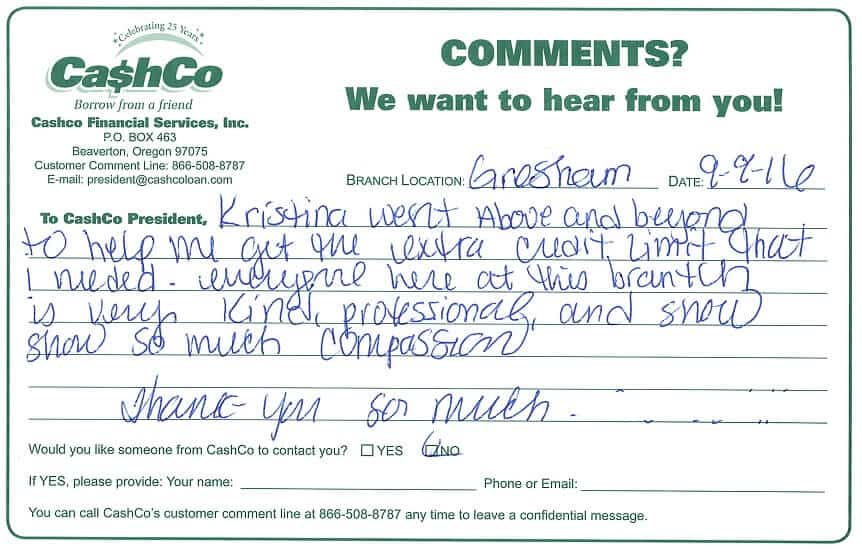 Celebrating 25 Years
Ca$hCo
Borrow from a friend
Cashco Financial Services, Inc.
P.O. BOX 463
Beaverton, Oregon 97075
Customer Comment Line: 866-508-8787
E-mail: president@cashcoloan.com
COMMENTS?
We want to hear from you!
BRANCH LOCATION: Gresham DATE: 9-9-16
To CashCo President, Kristina went Above and beyond
to help me get the extra credit limit that
I needed. everyone here at this brantch
is very kind, professional, and show
show so much compassion
Thank-you so much.
Would you like someone from CashCo to contact you? ☐ YES ☐ NO
If YES, please provide: Your name: Phone or Email:
You can call CashCo's customer comment line at 866-508-8787 any time to leave a confidential message.